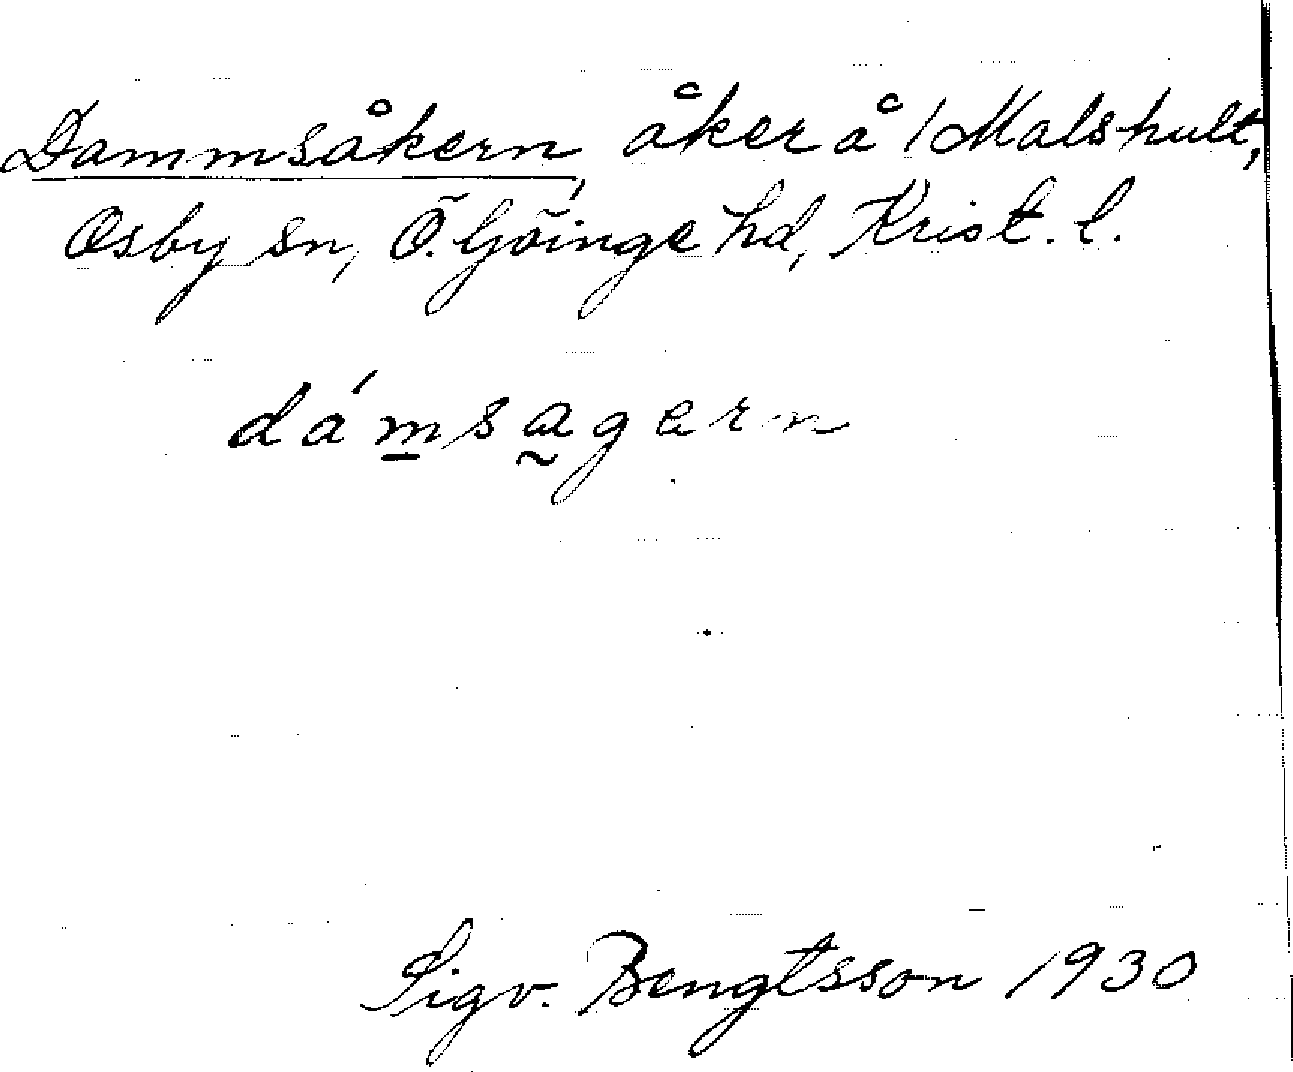 Dammsåkern, åker å 1 Malshult,
Osby sn, Ö. Göinge hd, Krist. l.
dám̲sa̰gern
Sigv. Bengtsson 1930